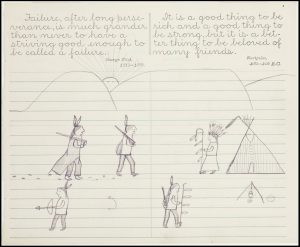 Failure, after long perse-
verance, is much grander
than never to have a
striving good enough to
be called a failure.
George Eliot
It is a good thing to be
rich, and a good thing to
be strong, but it is a bet-
ter thing to be beloved of
many friends.
Euripides